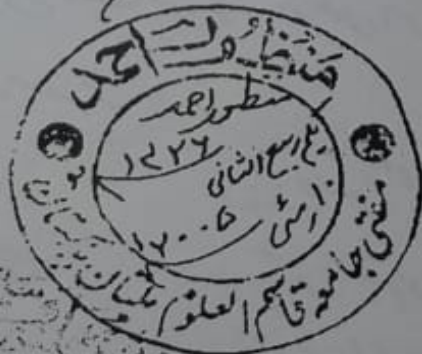 منظور احمد
منظور احمد
یکم ربیع الثانی ۱۴۲۶
۱۰ مئی ۲۰۰۵
مفتی جامعہ قاسم العلوم ملتان